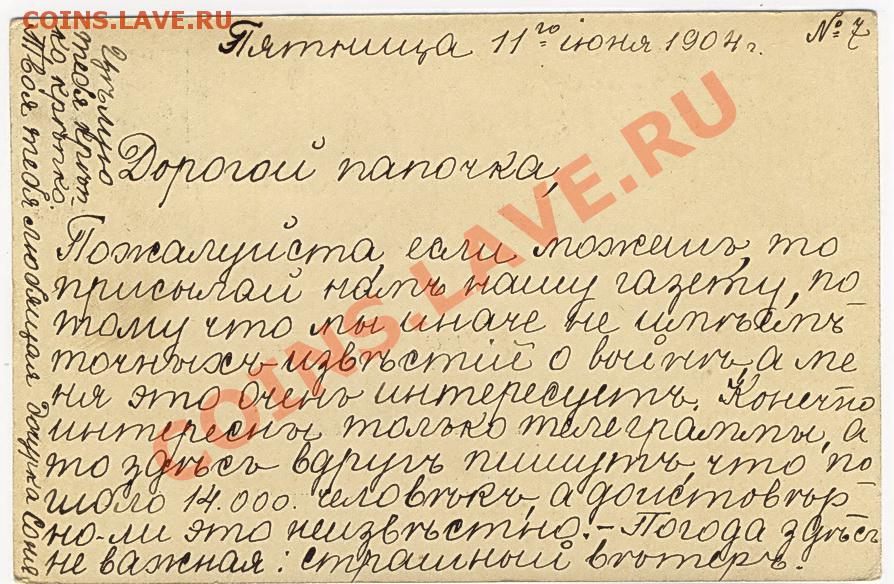 COINS.LAVE.RU
Пятница 11го iюня 1904 г. № 7
Дорогой папочка,
Пожалуйста, если можешь, то
присылай намъ нашу газету, по
тому что мы иначе не имѣемъ
точныхъ извѣстiй о войнѣ, а ме
ня это очень интересуетъ. Конечно
интересны только телеграммы, а
то здѣсь вдругъ пишутъ, что по
шло 14.000. человѣкъ, а достовѣр
но-ли это неизвѣстно. – Погода здѣсь
не важная: страшный вѣтеръ.
Цѣлую
тебя крѣп
ко крѣпко.
Твоя тебя любящая дочурка Соня
COINS.LAVE.RU